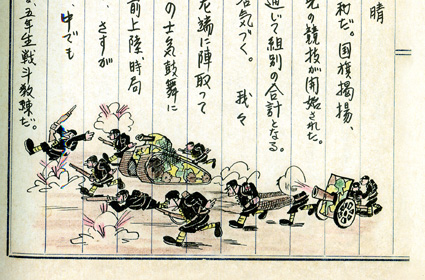 晴
和だ。国旗掲揚、
の競技が開始された。
通じて組別の合計となる。
気づく。 我々
端に陣取って
の士気鼓舞に
前上陸、時局
、さすが
、中でも
、五年生戦斗教練だ。